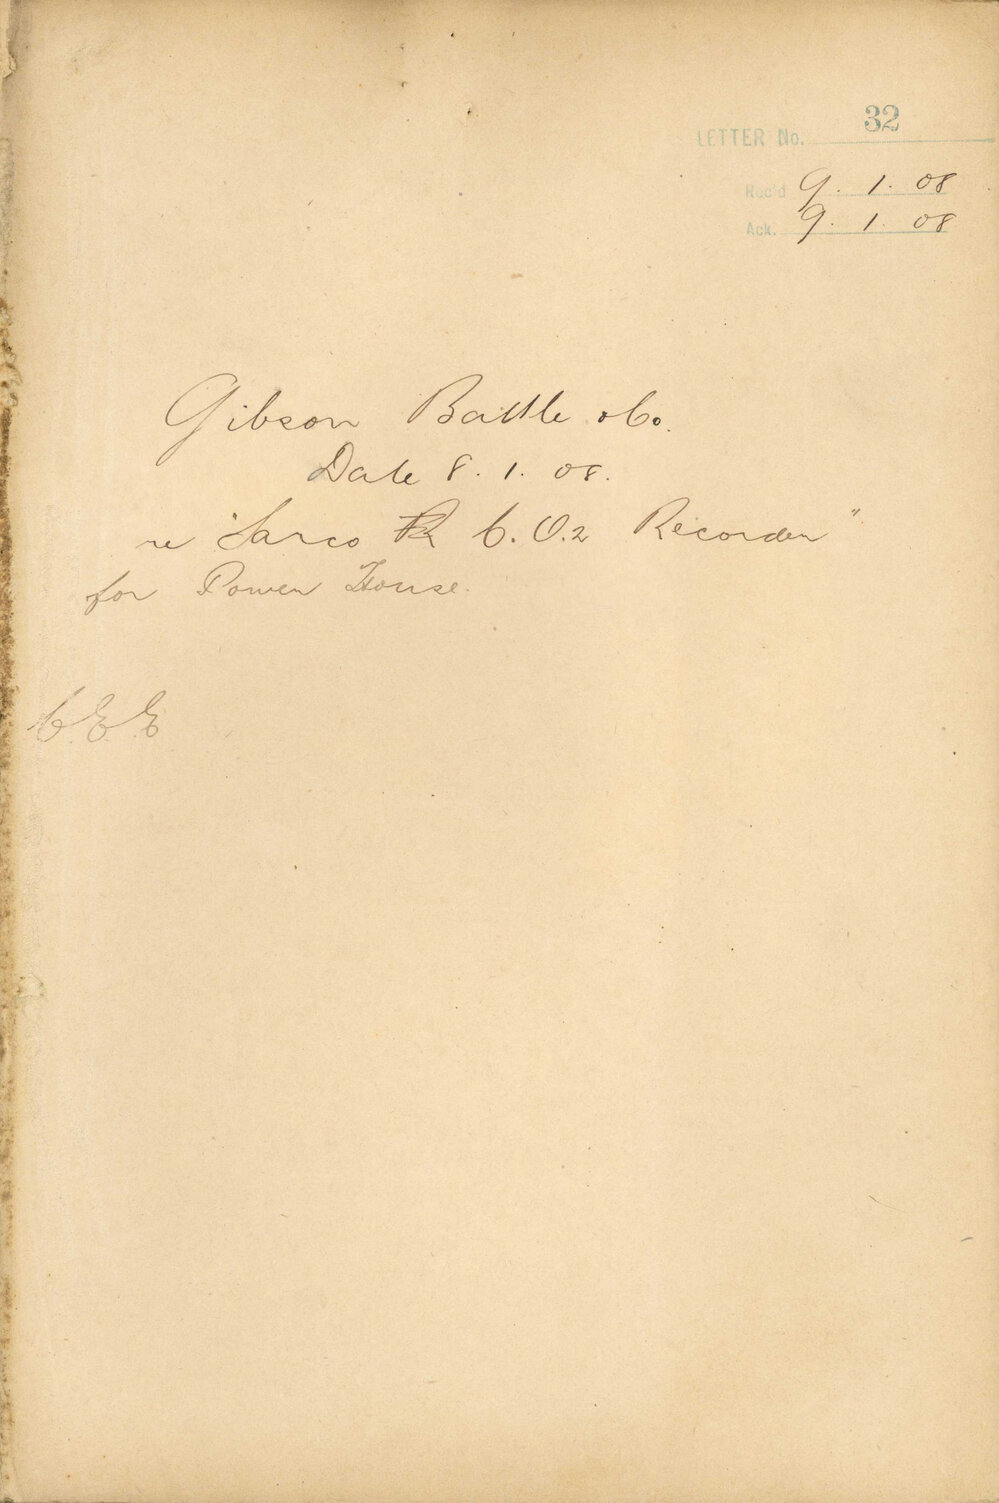 LETTER No. 32
Rec'd 9. 1. 08
Ack. 9. 1. 08
Gibson Battle & Co.
Date 8. 1. 08.
re "Sarco C. O.2 Recorder"
for Power House.
C.E.E